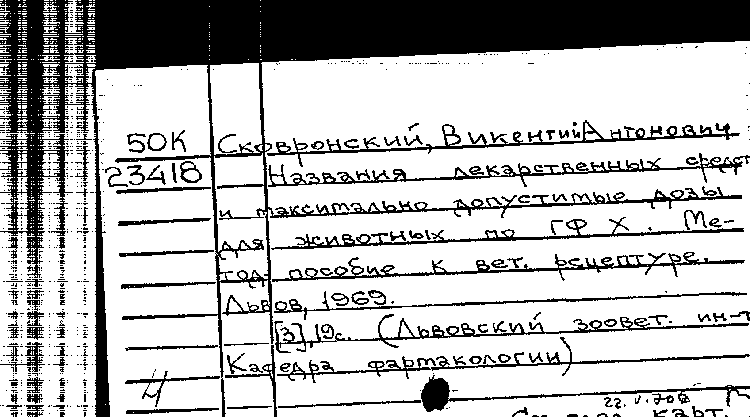 50К Сковронский, Викентий Антонович
23418 Названия лекарственных средст
и максимально допустимые дозы
для животных по ГФ X. Ме-
тод. пособие к вет. рецептуре.
Львов, 1969.
[3], 19с. (Львовский зоовет. ин-т
Кафедра фармакологии)
4
22.V.70
карт.